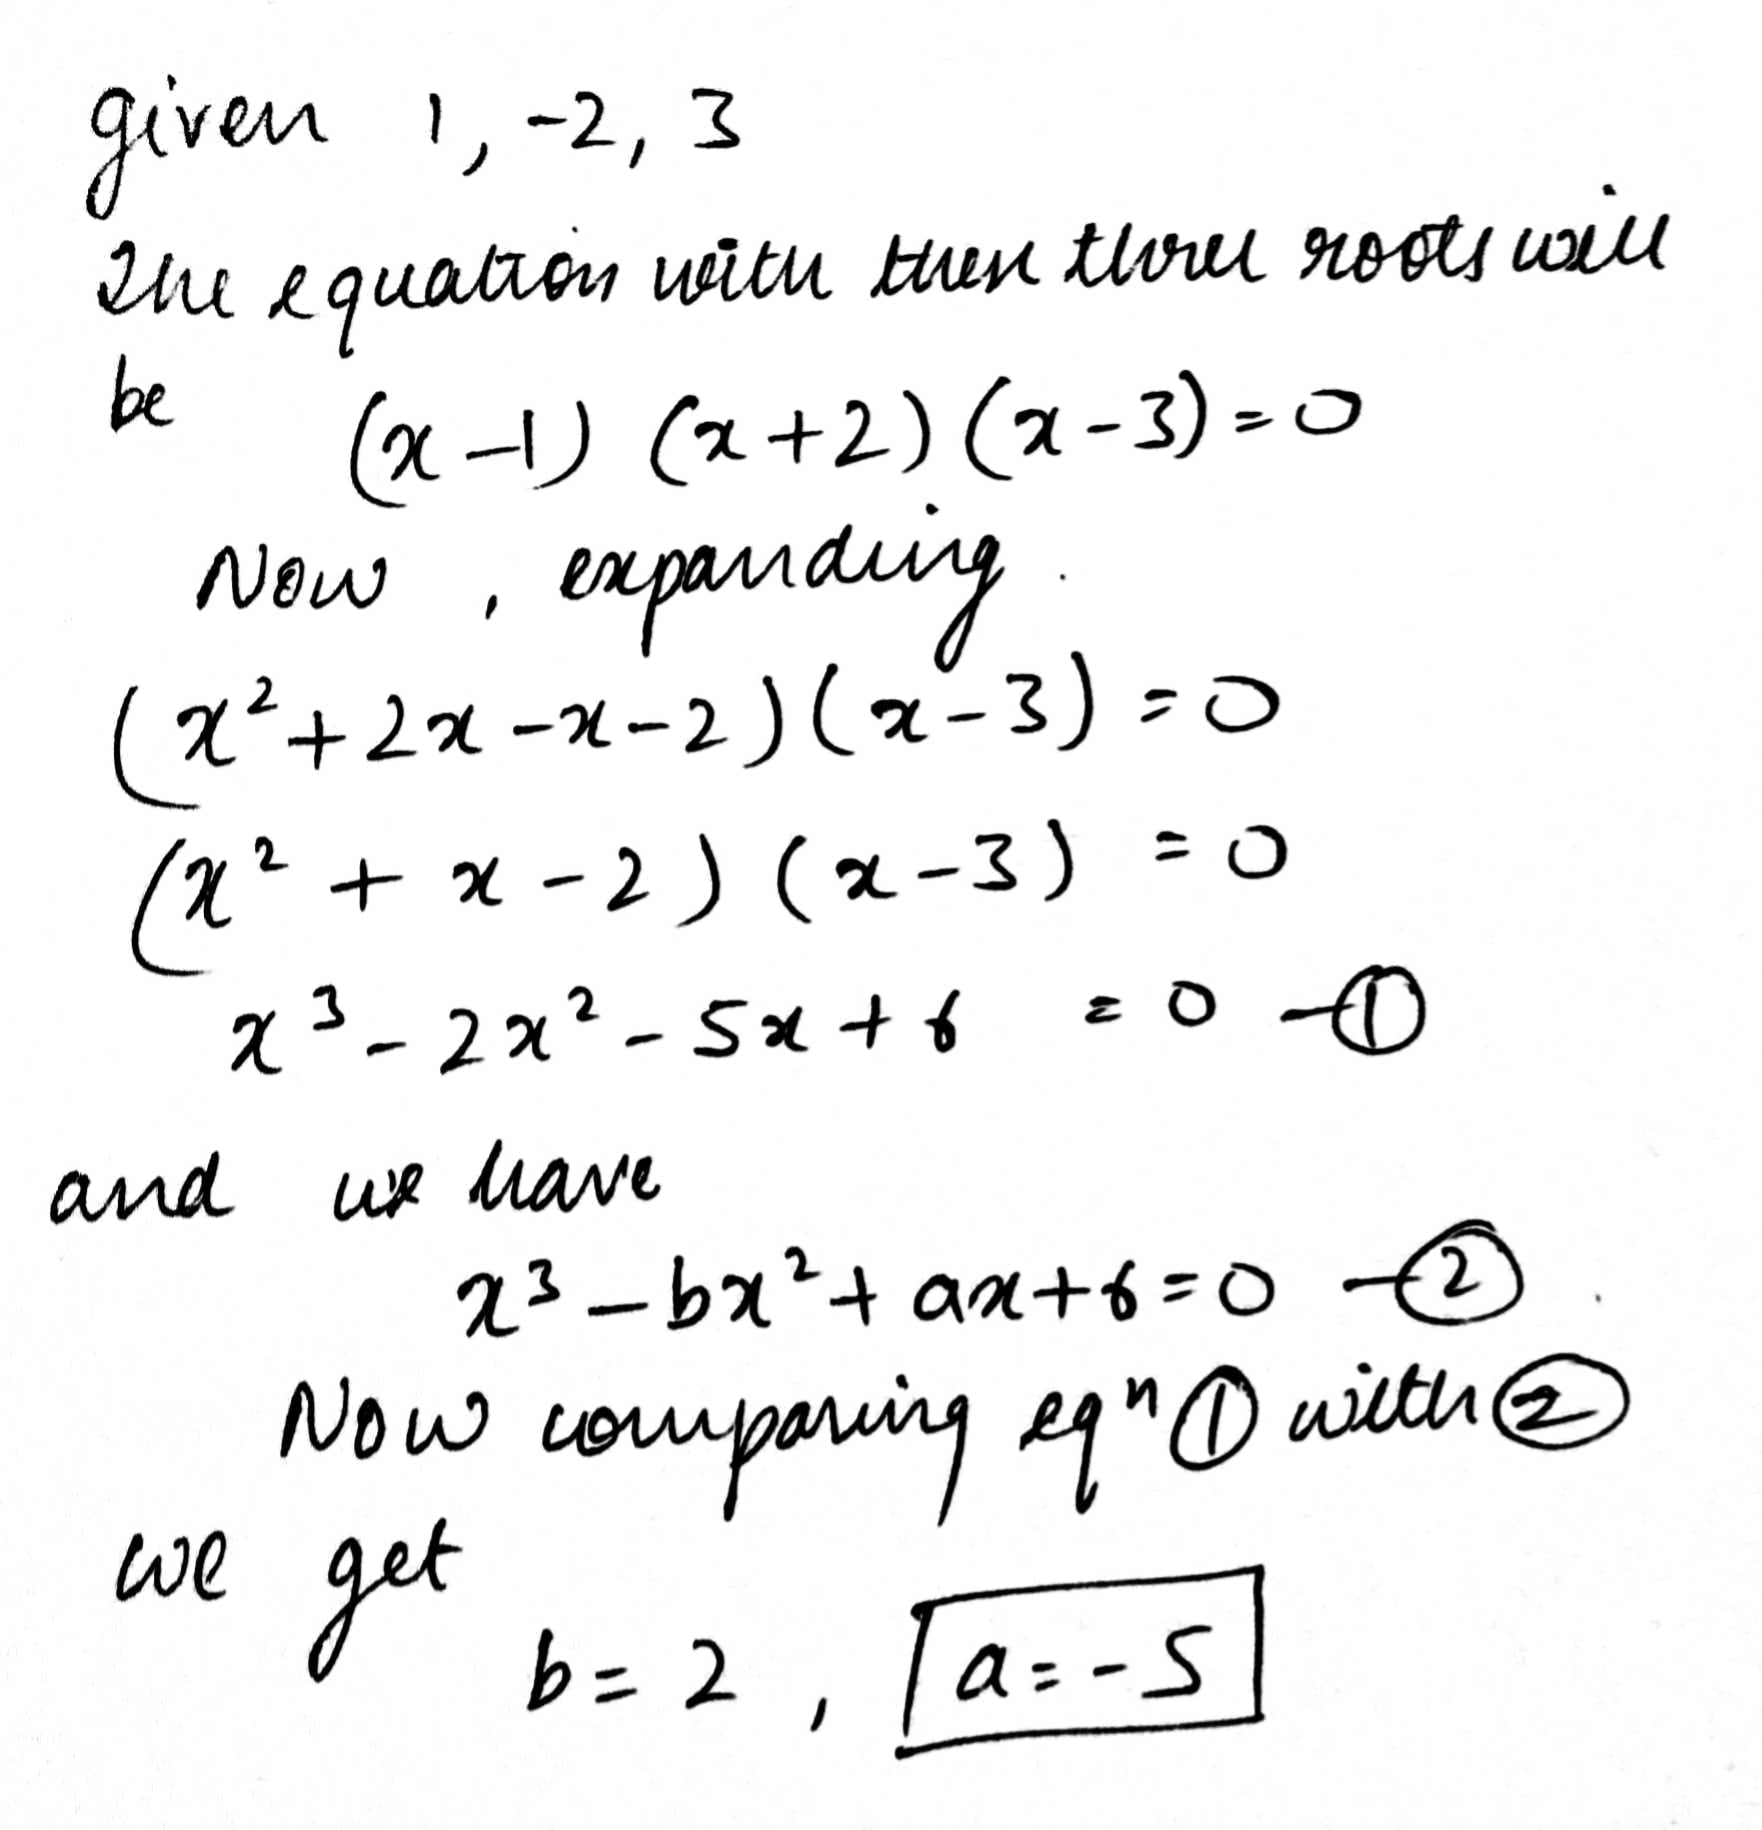 given 1, -2, 3
The equation with these three roots will
be (x-1) (x+2) (x-3) = 0
Now, expanding.
(x² + 2x - x - 2) (x - 3) = 0
(x² + x - 2) (x - 3) = 0
x³ - 2x² - 5x + 6 = 0 - ①
and we have
x³ - bx² + ax + 6 = 0 - ②
Now comparing eqⁿ ① with ②
we get
b = 2, a = -5